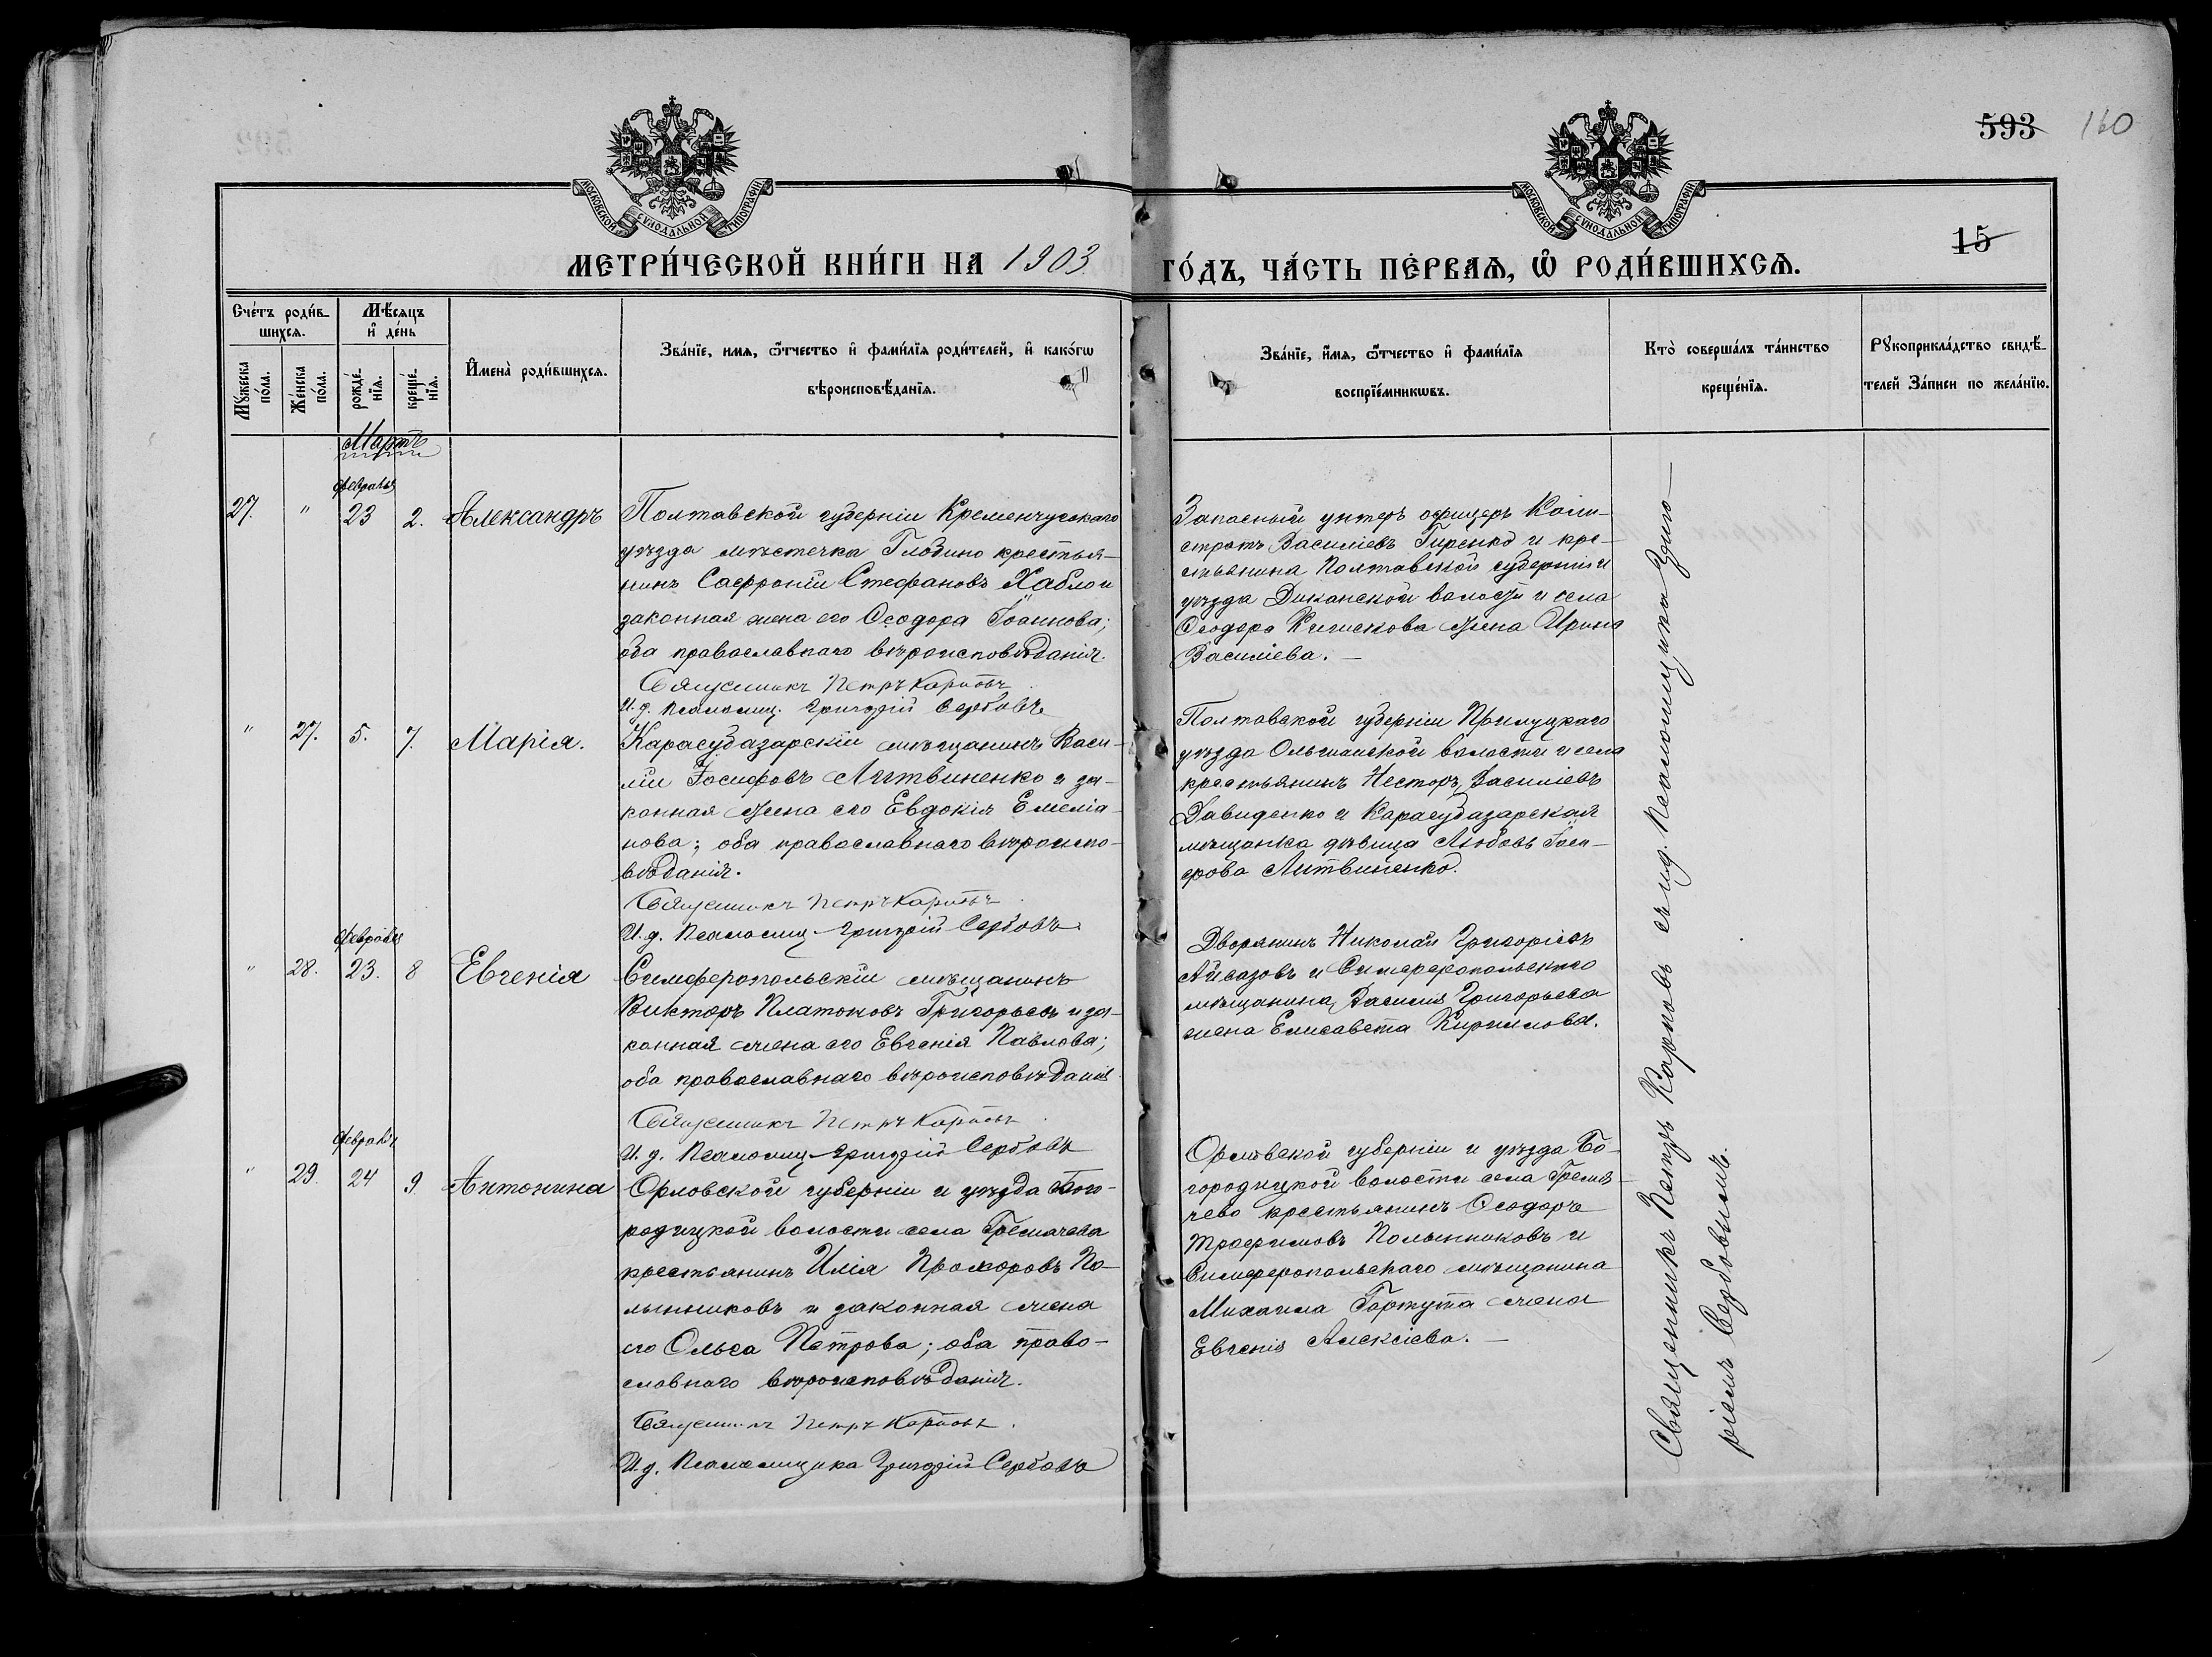 593 160
МОСКОВСКОЙ СѴНОДАЛЬНОЙ ТИПОГРАФІИ
МОСКОВСКОЙ СѴНОДАЛЬНОЙ ТИПОГРАФІИ
15
МЕТРИ́ЧЕСКОЙ КНИ́ГИ НА 1903 ГО́ДЪ, ЧА́СТЬ ПЕ́РВАѦ, Ѽ РОДИ́ВШИХСѦ.
Сче́тъ роди́в-
шихсѧ.
Мꙋ́жеска по́ла.
Же́нска по́ла.
Мѣ́сѧцъ
и҆ де́нь
рожде́-
нїѧ.
креще́-
нїѧ.
И҆мена̀ роди́вшихсѧ.
Зва́нїе, имѧ, ѿтчество и҆ фами́лїѧ роди́телей, и҆ како́гѡ
вѣроисповѣ́данїѧ.
Зва́нїе, и҆́мѧ, ѿтчество и҆ фами́лїѧ
воспрїе́мникѡвъ.
Кто̀ соверша́лъ та́инство
креще́нїѧ.
Рꙋкоприкла́дство свидѣ́-
телей За́писи по жела́нїю.
Мартъ
февраля
27. " 23 2. Александръ
Полтавской губерніи Кременчугскаго
уѣзда мѣстечка Глобино крестья-
нинъ Сафроній Стефановъ Хабло и
законная жена его Ѳеодора Іоаннова;
оба православнаго вѣроисповѣданія.
Священникъ Петръ Карповъ
И. д. псаломщ. Григорій Сербовъ
Запасный унтеръ офицеръ Кали-
стратъ Василіевъ Гиренко и кре-
стьянина Полтавской губерніи и
уѣзда Диканской волости и села
Ѳеодора жена Ирина
Василіева. —
" 27. 5. 7. Марія.
Карасубазарскій мѣщанинъ Васи-
лій Іосифовъ Литвиненко и за-
конная жена его Евдокія Емеліа-
нова; оба православнаго вѣроиспо-
вѣданія.
Священникъ Петръ Карповъ
И. д. Псаломщ. Григорій Сербовъ
Полтавской губерніи Прилуцкаго
уѣзда Ольшанской волости и села
крестьянинъ Несторъ Василіевъ
Давиденко и Карасубазарская
мѣщанка дѣвица Любовь Іоси-
фова Литвиненко.
февраля
" 28. 23. 8 Евгенія
Симферопольскій мѣщанинъ
Викторъ Платоновъ Григорьевъ и за-
конная жена его Евгенія Павлова;
оба православнаго вѣроисповѣданія
Священникъ Петръ Карповъ
И. д. Псаломщ. Григорій Сербовъ
Дворянинъ Николай Григоріевъ
Айвазовъ и Симферопольскаго
мѣщанина Василія Григорьева
жена Елисавета Кириллова.
февраля
" 29. 24 9 Антонина
Орловской губерніи и уѣзда Бого-
родицкой волости села Гремячева
крестьянинъ Илія Прохоровъ По-
лынниковъ и законная жена
его Ольга Петрова; оба право-
славнаго вѣроисповѣданія.
Священникъ Петръ Карповъ.
И. д. Псаломщика Григорій Сербовъ
Орловской губерніи и уѣзда Бо-
городицкой волости села Гремя-
чево крестьянинъ Ѳеодоръ
Трофимовъ Полынниковъ и
Симферопольскаго мѣщанина
Михаила жена
Евгенія Алексіева. —
Священникъ Петръ Карповъ съ и.д. псаломщика Григо-
ріемъ Сербовымъ.